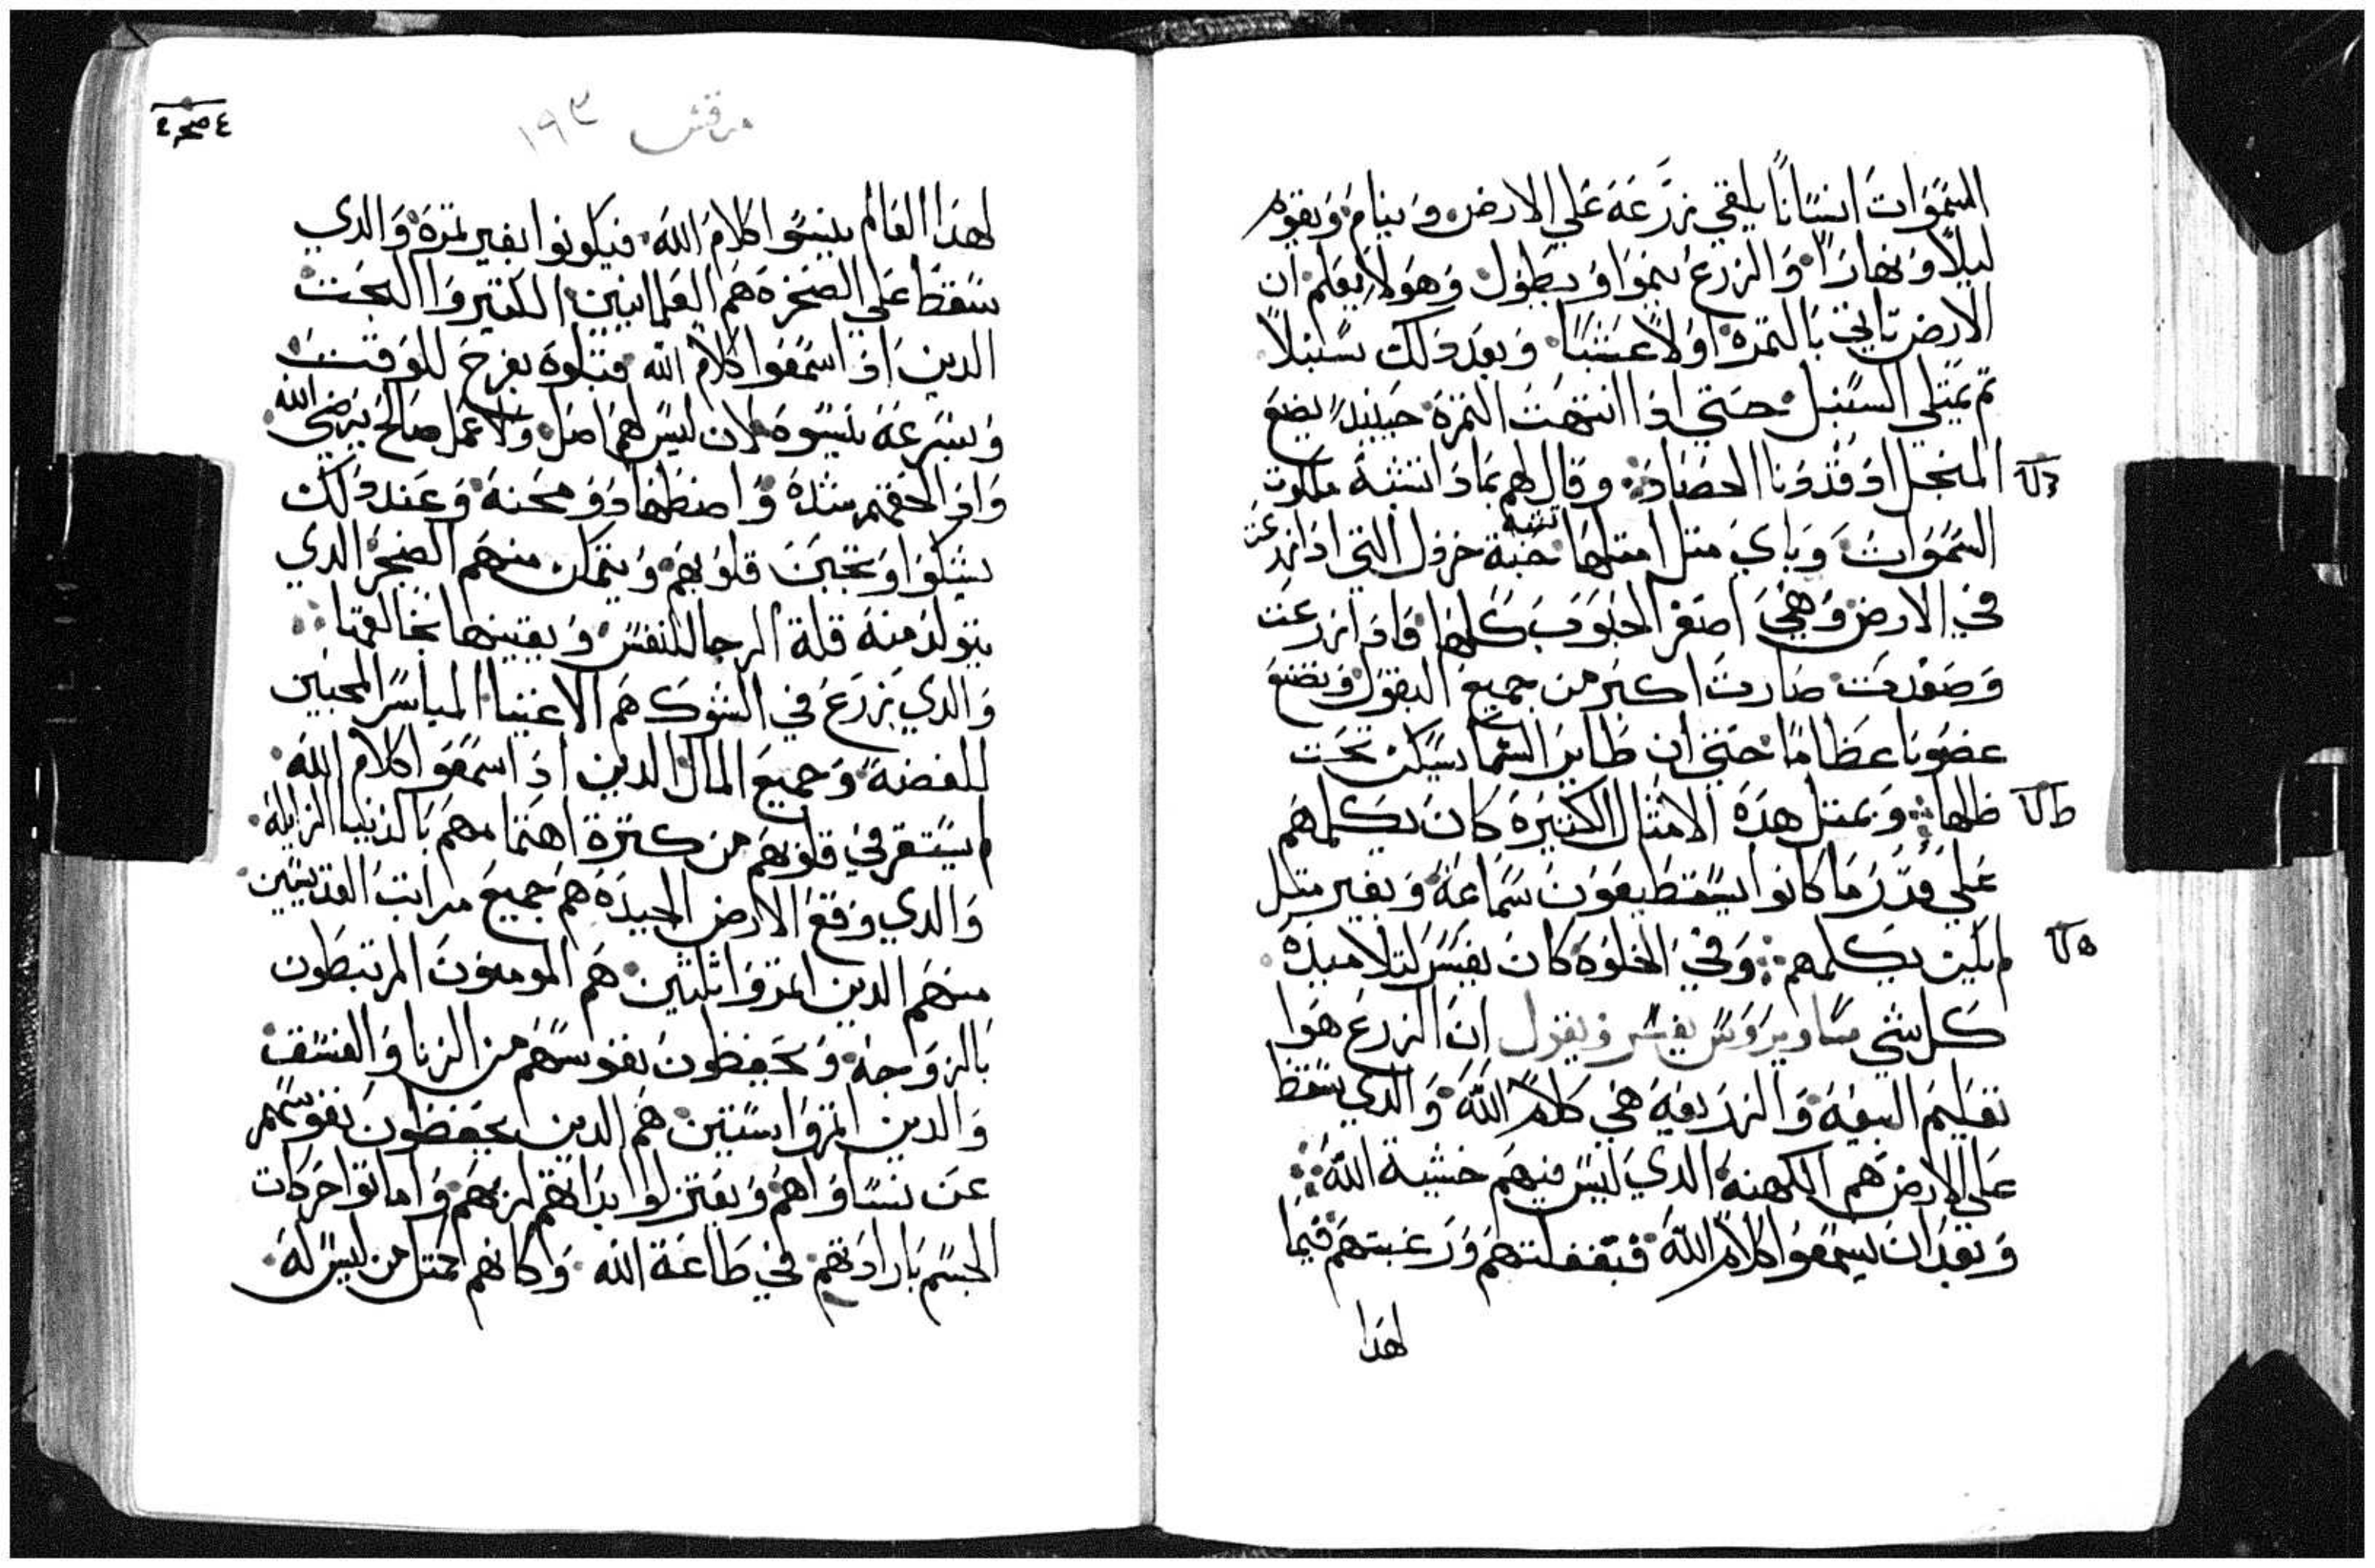 السموات انسانا يلقي زرعه علي الارض وينام ويقوم
ليلا ونهارا والزرع ينموا ويطول وهو لا يعلم ان
الارض تاتي بالتمرة اولا عشبا وبعد دلك سنبلا
تم يمتلي السنبل حتي ادا انتهت التمرة حينيد يضع
المنجل اد قد دنا الحصاد وقال لهم بمادا نشبه ملكوت
السموات وباي متل امتلها تشبه حبة خردل التي ادا زرعت
في الارض وهي اصغر الحبوب كلها فادا زرعت
وصعدت صارت اكبر من جميع البقول وتصنع
غصونا عظاما حتي ان طاير السما يسكن تحت
ظلها وبمتل هده الامتال الكتيرة كان يكلمهم
علي قدر ما كانوا يستطيعون سماعه وبغير متل
لم يكن يكلمهم وفي الخلوة كان يفسر لتلاميده
كل شي ساويرس يفسر ويقول ان الزرع هوا
تعليم البيعة والزريعة هي كلام الله والدي سقط
علي الارض هم الكهنة الدي ليس فيهم خشية الله
وبعد ان يسمعوا كلام الله فبغفلتهم ورغبتهم فيما
لهدا
مرقس ١٩٣
لهدا العالم ينسوا كلام الله فيكونوا بغير تمرة والدي
سقط علي الصخرة هم العلمانيين الكتيروا البحت
الدين ادا سمعوا كلام الله قبلوه بفرح للوقت
وبسرعة ينسوه لان ليس لهم اصل ولا عمل صالح يرضي الله
وادا لحقتهم شدة واضطهاد ومحنة وعند دلك
يشكوا وتجبن قلوبهم ويتمكن منهم الضجر الدي
يتولد منه قلة الرجا للنفس
والدي يزرع في الشوك هم الاغنيا المياسر المحبين
للفضة وجميع المال الدين ادا سمعوا كلام الله
لم يستقر في قلوبهم من كترة اهتمامهم بالدنيا الزايلة
والدي وقع الارض الجيدة هم جميع مراتب القديسين
منهم الدين اتمروا تلتين هم المومنون المرتبطون
بالزواجة ويحفظون نفوسهم من الزنا والفسق
والدين اتمروا ستين هم الدين يحفظون نفوسهم
عن نساواهم ويعتزلوا بداتهم لربهم واماتوا حركات
الجسم بارادتهم في طاعة الله وكانهم كمتل من ليس له